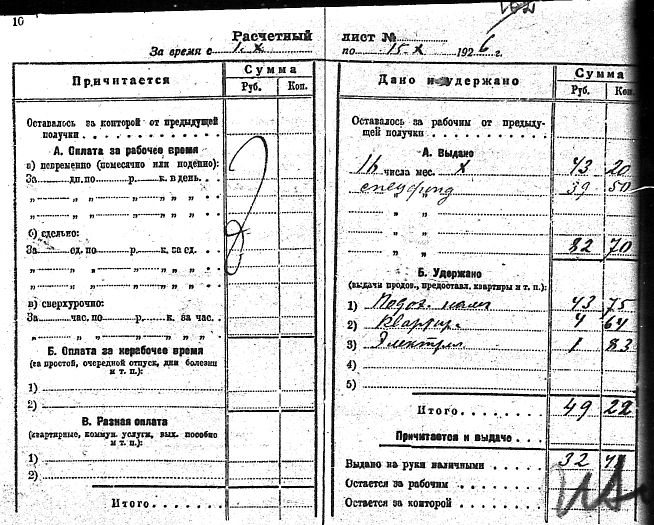 10
162
Расчетный лист №
За время с 1.X по 15-X 1926 г.
Причитается
Сумма
Руб. Коп.
Оставалось за конторой от предыдущей
получки
А. Оплата за рабочее время
а) повременно (помесячно или поденно):
За дн. по р. к. в день
„ „ „ „ „ „ „
„ „ „ „ „ „ „
б) сдельно:
За ед. по р. к. за ед.
„ „ „ „ „ „ „
„ „ „ „ „ „ „
в) сверхурочно:
За час. по р. к. за час.
„ „ „ „ „ „ „
Б. Оплата за нерабочее время
(за простой, очередной отпуск, дни болезни
и т. п.):
1)
2)
В. Разная оплата
(квартирные, коммун. услуги, вых. пособие
и т. п.):
1)
2)
Итого
Дано и удержано
Сумма
Руб. Коп.
Оставалось за рабочим от предыду-
щей получки
А. Выдано
16 числа мес. X 43 20
спецфонд „ „ 39 50
„ „
„ „ 82 70
Б. Удержано
(выдачи продов., предоставл. квартиры и т. п.):
1) Подох. налог 43 75
2) Квартир. 4 64
3) Электр. 1 83
4)
5)
Итого 49 22
Причитается к выдаче
Выдано на руки наличными 32
Остается за рабочим
Остается за конторой